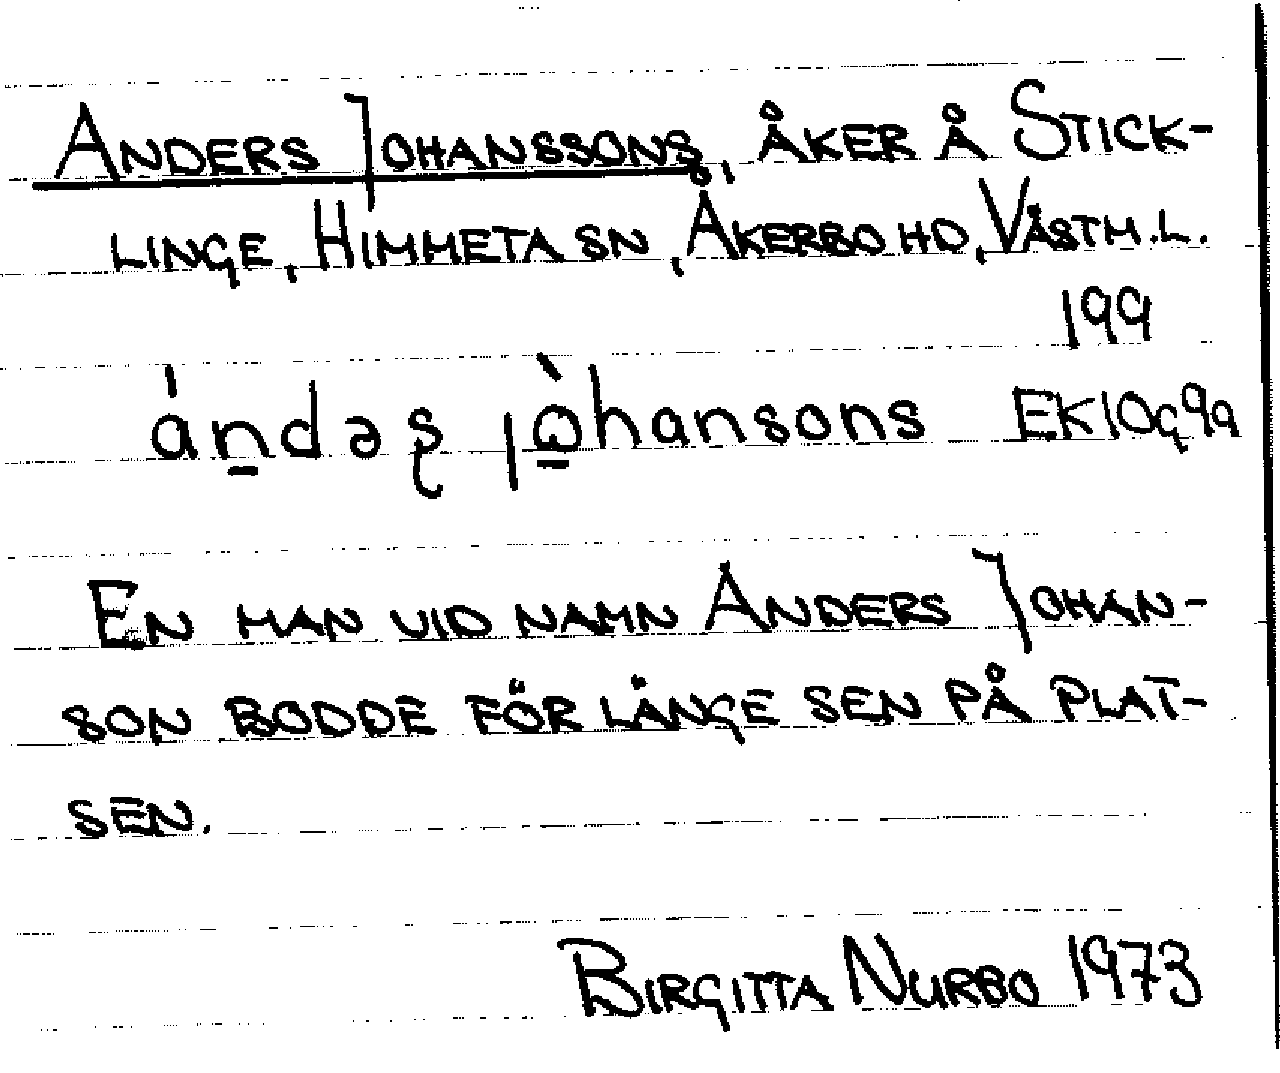 Anders Johanssons, åker å Stick-
linge, Himmeta sn, Åkerbo hd, Västm.l.
199
ándəʂ jòhansons EK10g9a
En man vid namn Anders Johan-
son bodde för länge sen på plat-
sen.
Birgitta Nurbo 1973